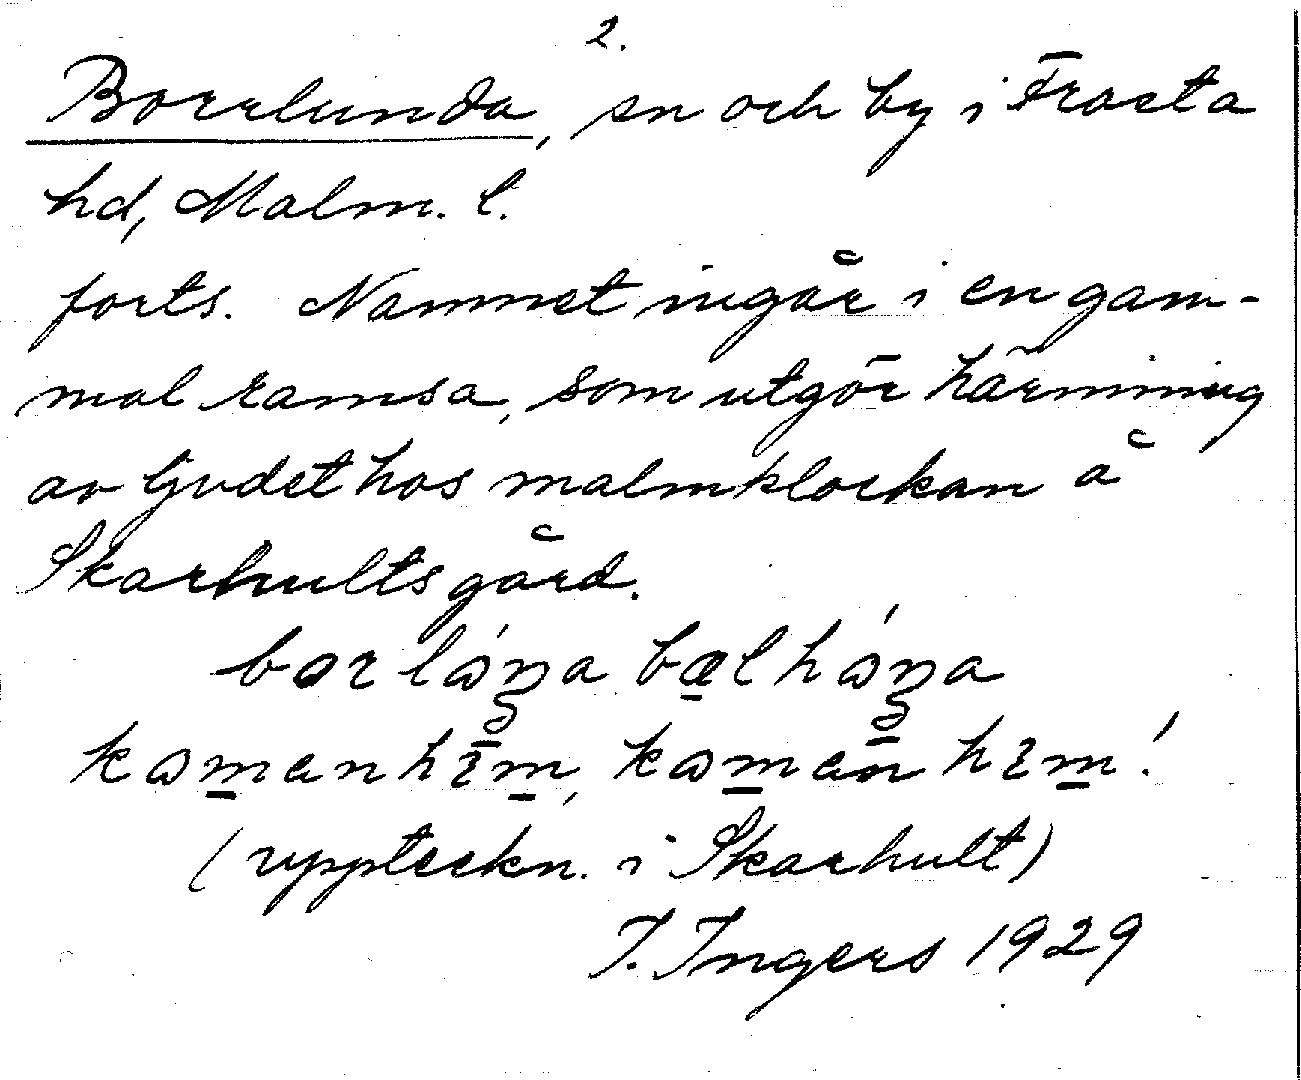 2.
Borrlunda, sn och by i Frosta
hd, Malm. l.
forts. Namnet ingår i en gam-
mal ramsa, som utgör härmning
av ljudet hos malmklockan å
Skarhults gård.
(uppteckn. i Skarhult)
I. Ingers 1929